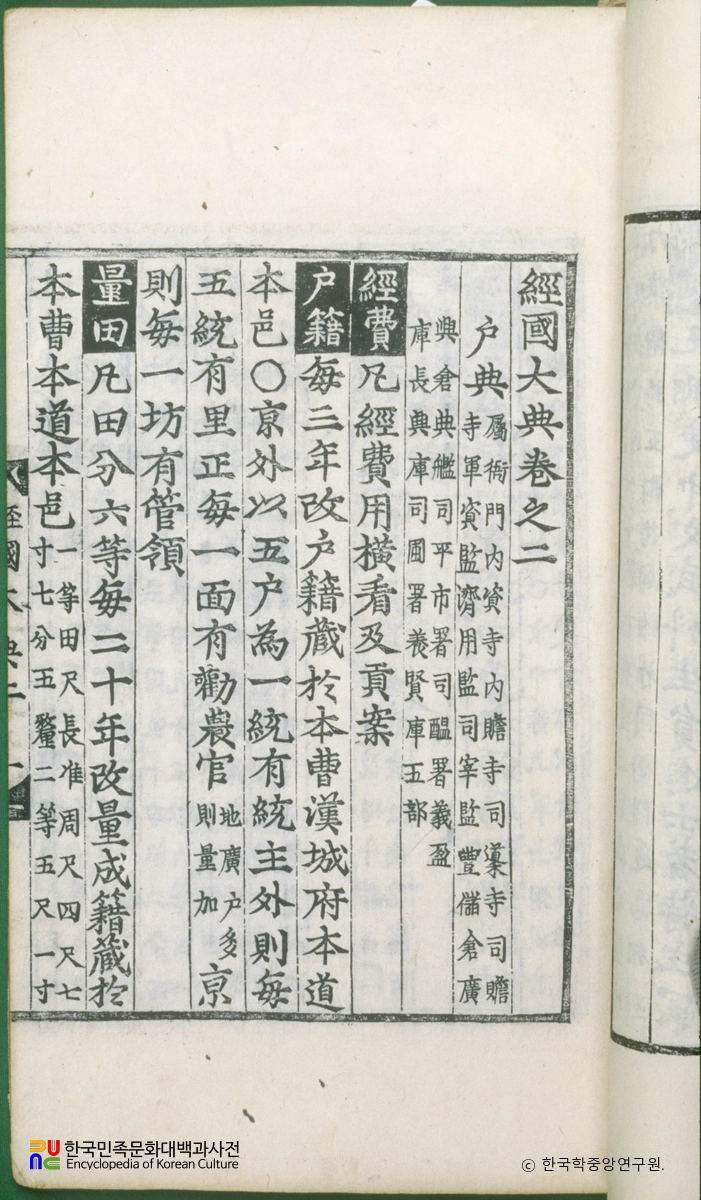 經國大典卷之二
户典屬衙門内資寺内贍寺司䆃寺司贍
寺軍資監濟用監司宰監豐儲倉廣
興倉典艦司平市署司醞署義盈
庫長興庫司圃署養賢庫五部
經費凡經費用橫看及貢案
户籍每三年改户籍藏於本曹漢城府本道
本邑〇京外以五户為一統有統主外則每
五統有里正每一面有勸農官地廣户多
則量加京
則每一坊有管領
量田凡田分六等每二十年改量成籍藏於
本曹本道本邑一等田尺長准周尺四尺七
寸七分五釐二等五尺一寸
經國大典二
한국민족문화대백과사전
Encyclopedia of Korean Culture
© 한국학중앙연구원.